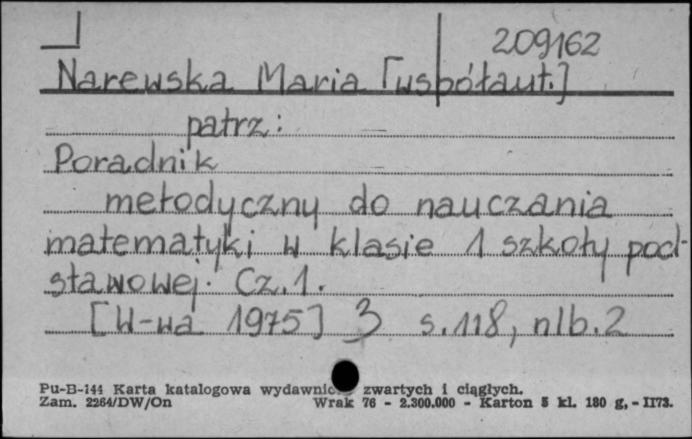 209162
Narewska Maria [współaut.]
patrz:
Poradnik
metodyczny do nauczania
matematyki w klasie 1 szkoły pod-
stawowej. Cz.1.
[W-wa 1975] 3 s.118, nlb.2
Pu-B-144 Karta katalogowa wydawnic zwartych i ciągłych.
Zam. 2264/DW/On Wrak 76 - 2.300.000 - Karton 5 kl. 180 g, - II73.